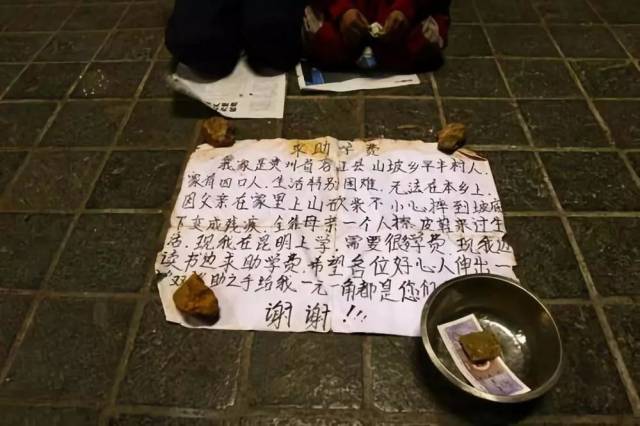 求助学费
我家是贵州省石江县山坡乡平丰村人.
家有四口人.生活特别困难.无法在本乡上.
因父亲在家里上山砍柴不小心摔到坡底
下变成残疾.全靠母亲一个人擦皮鞋来过生
活.现我在昆明上学.需要很学费.现我边
读书边来助学费.希望各位好心人伸出一
双助之手给我一元一角都是您们
谢谢!!!